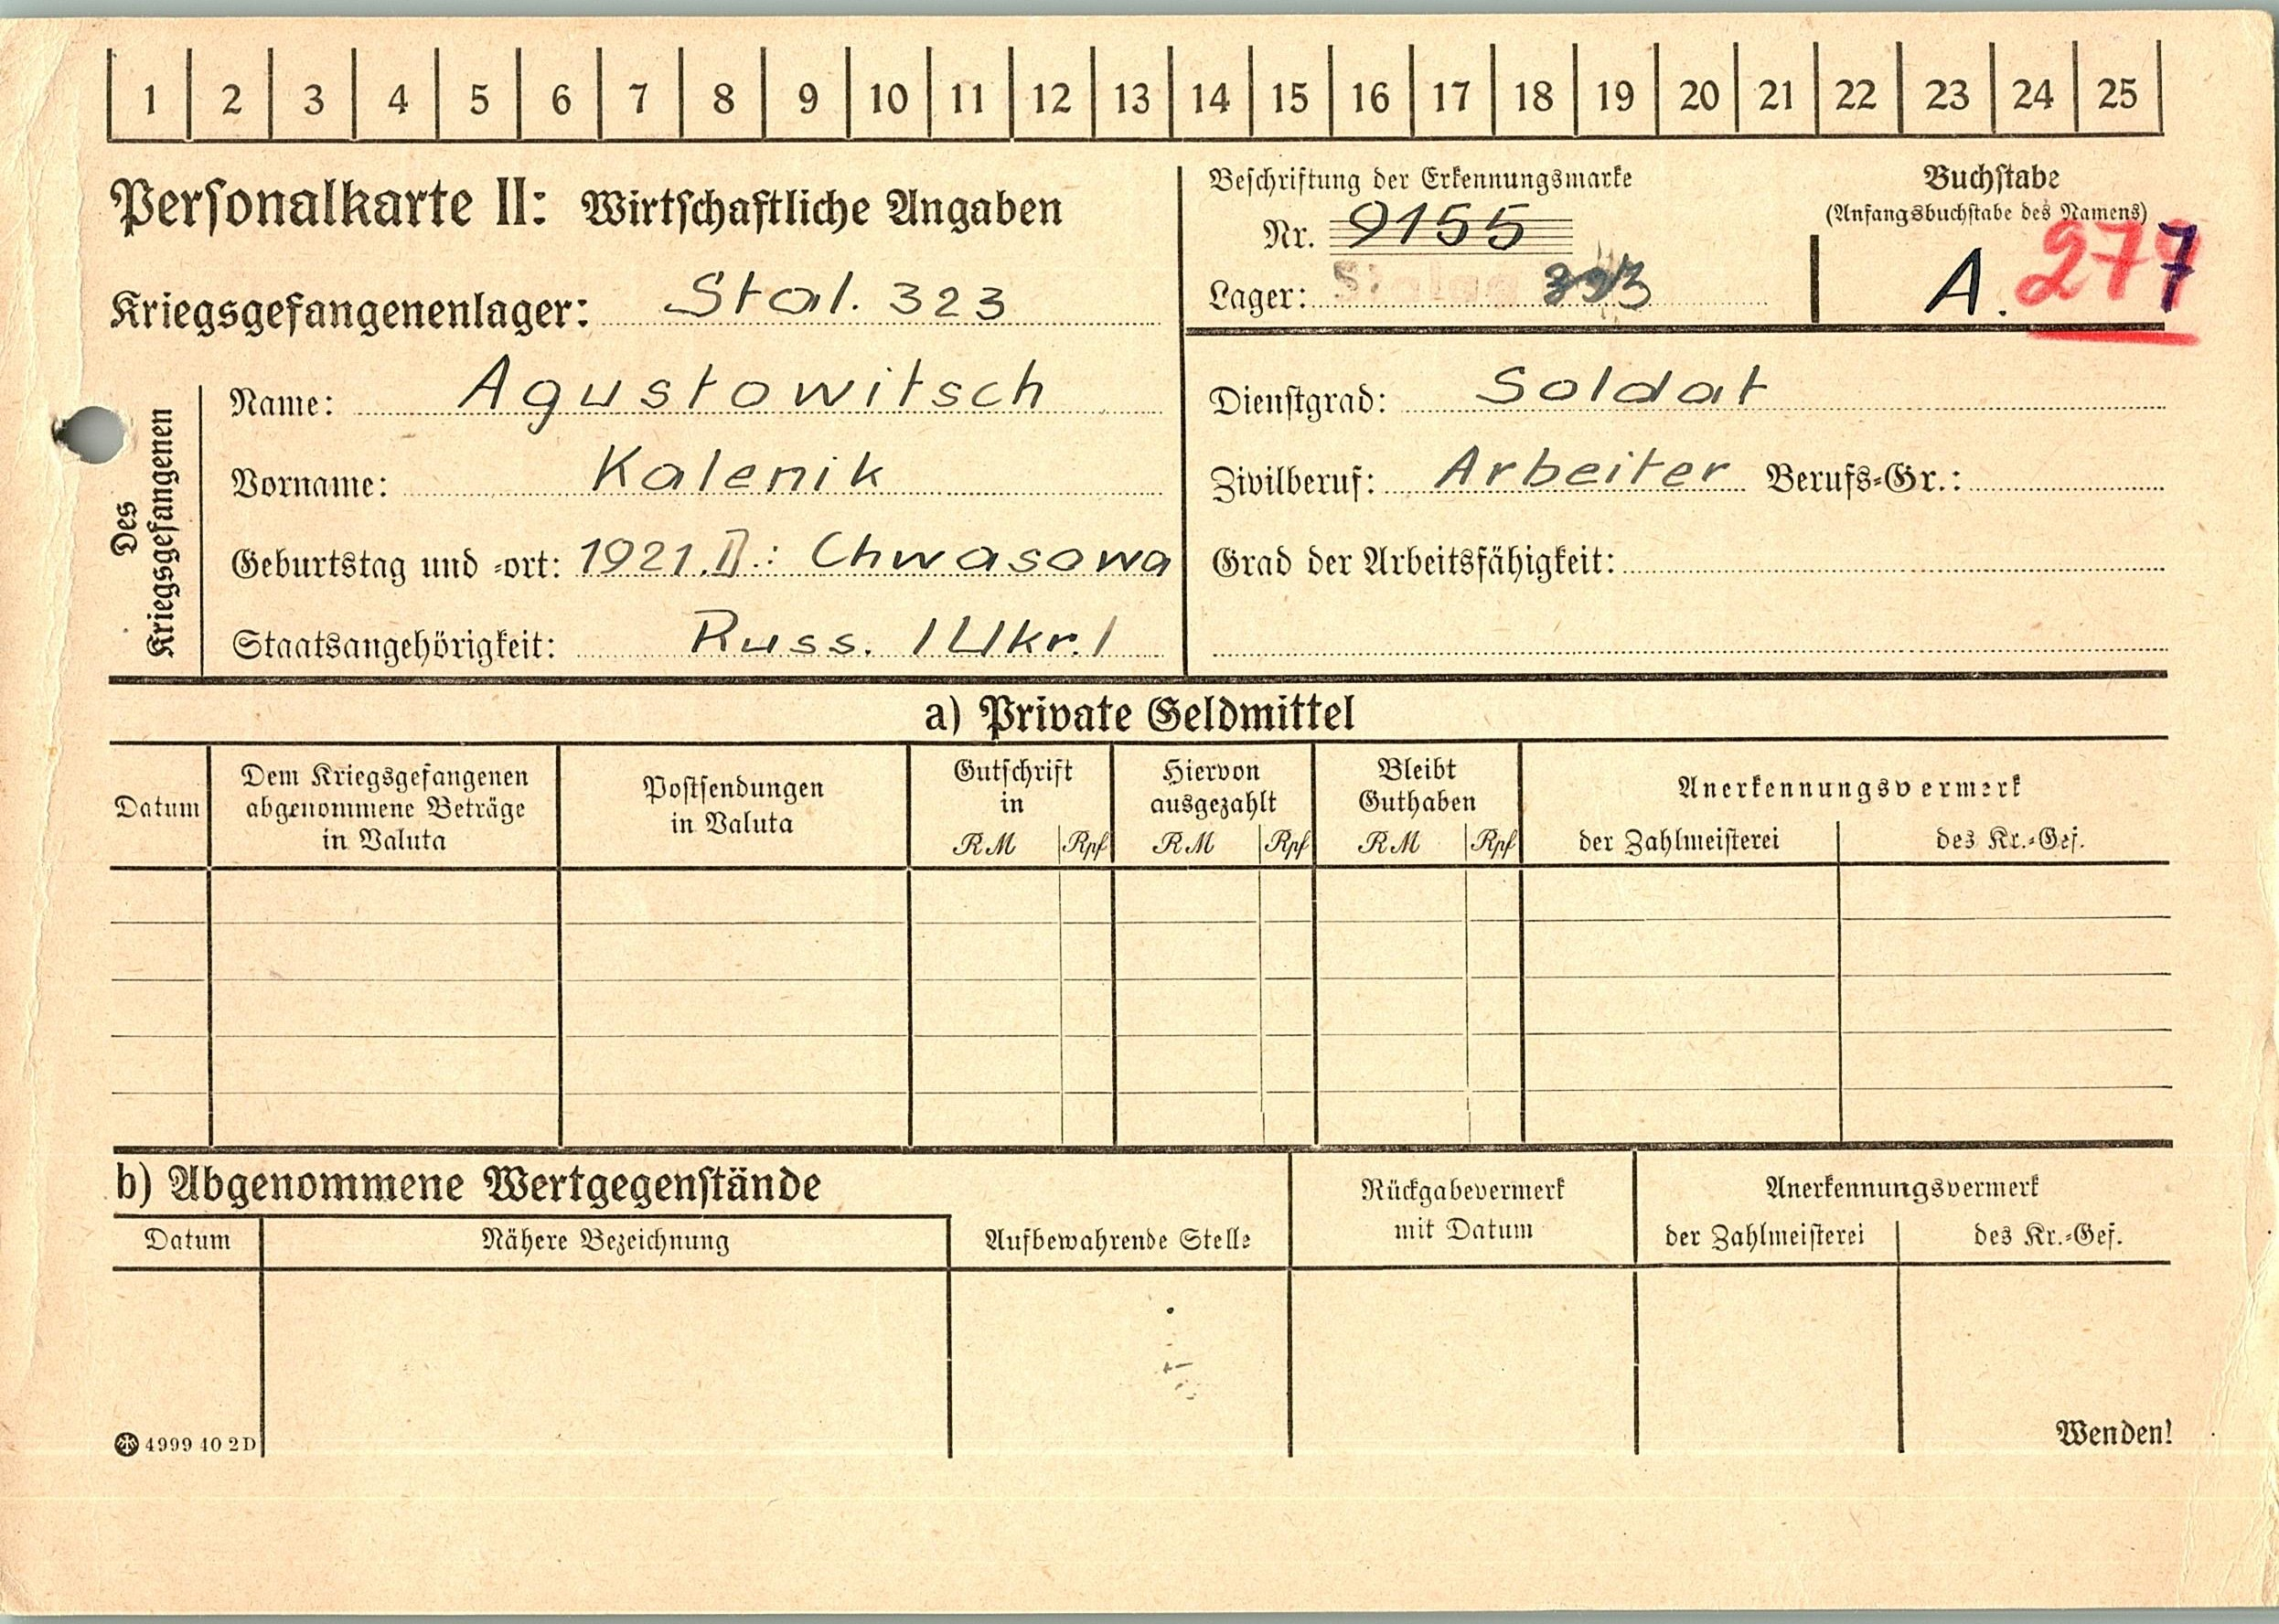 1 2 3 4 5 6 7 8 9 10 11 12 13 14 15 16 17 18 19 20 21 22 23 24 25
Personalkarte II: Wirtschaftliche Angaben
Beschriftung der Erkennungsmarke
Nr. 9155
Lager:
Buchstabe
(Anfangsbuchstabe des Namens)
A. 277
Kriegsgefangenenlager: Stal. 323
Des Kriegsgefangenen
Name: Agustowitsch
Vorname: Kalenik
Geburtstag und -ort: 1921. II.: Chwasowa
Staatsangehörigkeit: Russ. /Ukr./
Dienstgrad: Soldat
Zivilberuf: Arbeiter Berufs-Gr.:
Grad der Arbeitsfähigkeit:
a) Private Geldmittel
Datum
Dem Kriegsgefangenen
abgenommene Beträge
in Valuta
Postsendungen
in Valuta
Gutschrift
in
RM Rpf
Hiervon
ausgezahlt
RM Rpf
Bleibt
Guthaben
RM Rpf
Anerkennungsvermerk
der Zahlmeisterei des Kr.-Gef.
b) Abgenommene Wertgegenstände
Datum Nähere Bezeichnung Aufbewahrende Stelle
Rückgabevermerk
mit Datum
Anerkennungsvermerk
der Zahlmeisterei des Kr.-Gef.
4999 40 2D
Wenden!